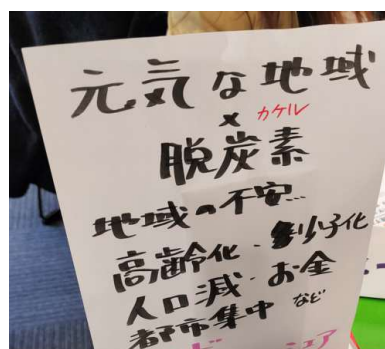 元気な地域
× カケル
脱炭素
地域の不安…
高齢化・少子化
人口減・お金
都市集中 など